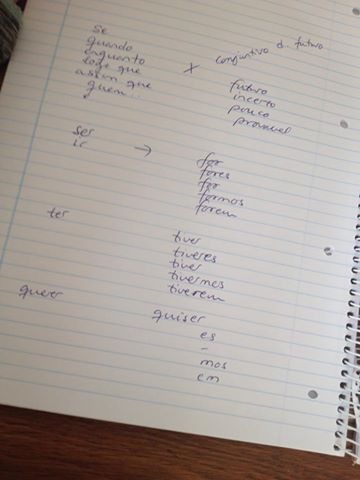 se
quando
enquanto
logo que
assim que
quem...
x conjuntivo d. futuro
futuro
incerto
pouco
provavel
ser
ir →
for
fores
for
formos
forem
ter
tiver
tiveres
tiver
tivermos
tiverem
querer
quiser
es
-
mos
em